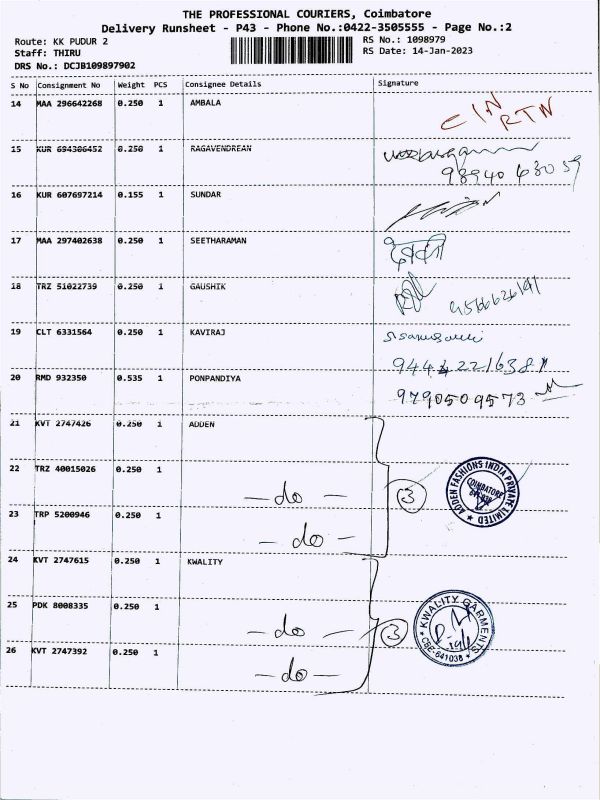 THE PROFESSIONAL COURIERS, Coimbatore
Delivery Runsheet - P43 - Phone No.:0422-3505555 - Page No.:2
Route: KK PUDUR 2
RS No.: 1098979
Staff: THIRU
RS Date: 14-Jan-2023
DRS No.: DCJB109897902
S No Consignment No Weight PCS Consignee Details Signature
14 MAA 296642268 0.250 1 AMBALA
C/N RTN
15 KUR 694306452 0.250 1 RAGAVENDREAN
98940 63059
16 KUR 607697214 0.155 1 SUNDAR
17 MAA 297402638 0.250 1 SEETHARAMAN
18 TRZ 51022739 0.250 1 GAUSHIK
19 CLT 6331564 0.250 1 KAVIRAJ
20 RMD 932350 0.535 1 PONPANDIYA
9790509573
21 KVT 2747426 0.250 1 ADDEN
22 TRZ 40015026 0.250 1
- do - 3
ADDEN FASHIONS INDIA PRIVATE LIMITED
COIMBATORE
23 TRP 5200946 0.250 1
- do -
24 KVT 2747615 0.250 1 KWALITY
25 PDK 8008335 0.250 1
- do - 3
KWALITY GARMENTS
CBE-641038
26 KVT 2747392 0.250 1
- do -